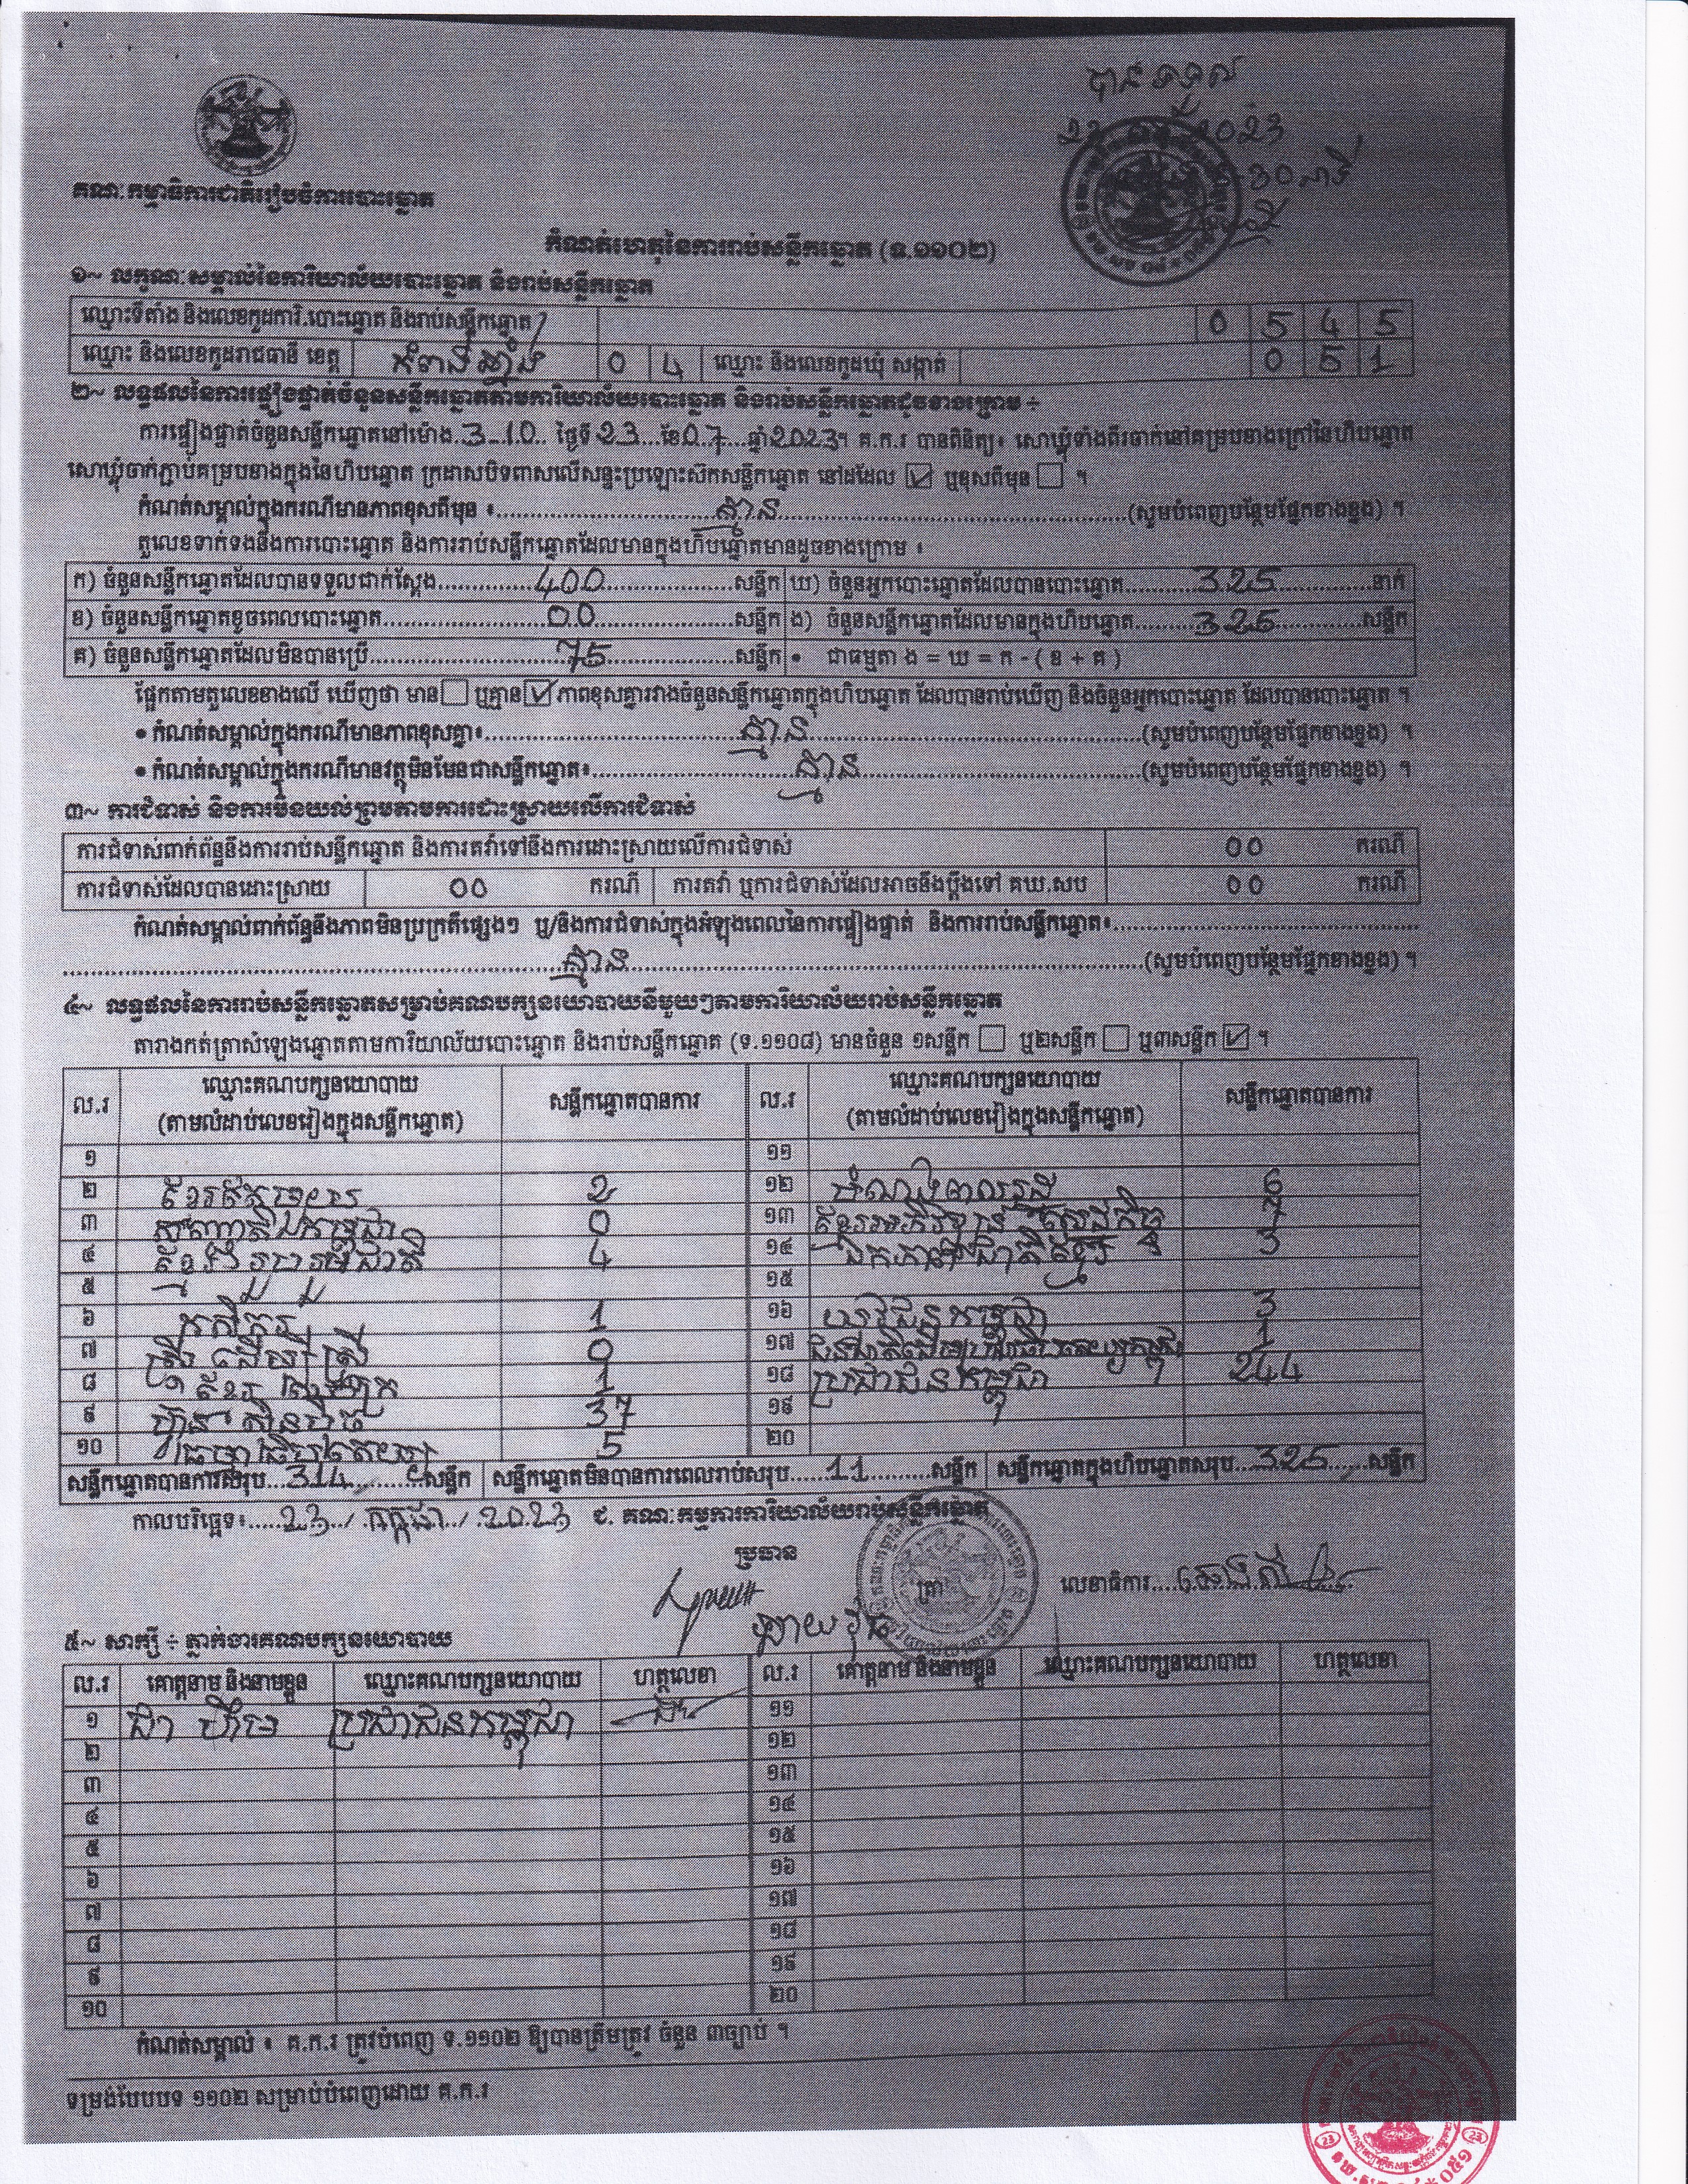 បានទទួល
2023
30 នាទី
គណៈកម្មាធិការជាតិរៀបចំការបោះឆ្នោត
កំណត់ហេតុនៃការរាប់សន្លឹកឆ្នោត (ទ.១១០២)
១~ លក្ខណៈសម្គាល់នៃការិយាល័យបោះឆ្នោត និងរាប់សន្លឹកឆ្នោត
ឈ្មោះទីតាំង និងលេខកូដការិ.បោះឆ្នោត និងរាប់សន្លឹកឆ្នោត 0 5 4 5
ឈ្មោះ និងលេខកូដរាជធានី ខេត្ត កំពង់ឆ្នាំង 0 4 ឈ្មោះ និងលេខកូដឃុំ សង្កាត់ 0 5 1
២~ លទ្ធផលនៃការផ្ទៀងផ្ទាត់ចំនួនសន្លឹកឆ្នោតតាមការិយាល័យបោះឆ្នោត និងរាប់សន្លឹកឆ្នោតដូចខាងក្រោម ÷
ការផ្ទៀងផ្ទាត់ចំនួនសន្លឹកឆ្នោតនៅម៉ោង 3-10 ថ្ងៃទី 23 ខែ 07 ឆ្នាំ 2023។ គ.ក.រ បានពិនិត្យ៖ សោឃ្លុំទាំងពីរចាក់នៅគម្របខាងក្រៅនៃហិបឆ្នោត
សោឃ្លុំចាក់ភ្ជាប់គម្របខាងក្នុងនៃហិបឆ្នោត ក្រដាសបិទពាសលើសន្ទះប្រឡោះស៊កសន្លឹកឆ្នោត នៅដដែល ☑ ឬខុសពីមុន ☐ ។
កំណត់សម្គាល់ក្នុងករណីមានភាពខុសពីមុន ៖ គ្មាន (សូមបំពេញបន្ថែមផ្នែកខាងខ្នង) ។
តួលេខទាក់ទងនឹងការបោះឆ្នោត និងការរាប់សន្លឹកឆ្នោតដែលមានក្នុងហិបឆ្នោតមានដូចខាងក្រោម ៖
ក) ចំនួនសន្លឹកឆ្នោតដែលបានទទួលជាក់ស្តែង 400 សន្លឹក ឃ) ចំនួនអ្នកបោះឆ្នោតដែលបានបោះឆ្នោត 325 នាក់
ខ) ចំនួនសន្លឹកឆ្នោតខូចពេលបោះឆ្នោត 00 សន្លឹក ង) ចំនួនសន្លឹកឆ្នោតដែលមានក្នុងហិបឆ្នោត 325 សន្លឹក
គ) ចំនួនសន្លឹកឆ្នោតដែលមិនបានប្រើ 75 សន្លឹក • ជាធម្មតា ង = ឃ = ក - ( ខ + គ )
ផ្អែកតាមតួលេខខាងលើ ឃើញថា មាន ☐ ឬគ្មាន ☑ ភាពខុសគ្នារវាងចំនួនសន្លឹកឆ្នោតក្នុងហិបឆ្នោត ដែលបានរាប់ឃើញ និងចំនួនអ្នកបោះឆ្នោត ដែលបានបោះឆ្នោត ។
• កំណត់សម្គាល់ក្នុងករណីមានភាពខុសគ្នា៖ គ្មាន (សូមបំពេញបន្ថែមផ្នែកខាងខ្នង) ។
• កំណត់សម្គាល់ក្នុងករណីមានវត្ថុមិនមែនជាសន្លឹកឆ្នោត៖ គ្មាន (សូមបំពេញបន្ថែមផ្នែកខាងខ្នង) ។
៣~ ការជំទាស់ និងការមិនយល់ព្រមតាមការដោះស្រាយលើការជំទាស់
ការជំទាស់ពាក់ព័ន្ធនឹងការរាប់សន្លឹកឆ្នោត និងការតវ៉ាទៅនឹងការដោះស្រាយលើការជំទាស់ 00 ករណី
ការជំទាស់ដែលបានដោះស្រាយ 00 ករណី ការតវ៉ា ឬការជំទាស់ដែលអាចនឹងប្តឹងទៅ គឃ.សប 00 ករណី
កំណត់សម្គាល់ពាក់ព័ន្ធនឹងភាពមិនប្រក្រតីផ្សេងៗ ឬ/និងការជំទាស់ក្នុងអំឡុងពេលនៃការផ្ទៀងផ្ទាត់ និងការរាប់សន្លឹកឆ្នោត៖
គ្មាន (សូមបំពេញបន្ថែមផ្នែកខាងខ្នង) ។
៤~ លទ្ធផលនៃការរាប់សន្លឹកឆ្នោតសម្រាប់គណបក្សនយោបាយនីមួយៗតាមការិយាល័យរាប់សន្លឹកឆ្នោត
តារាងកត់ត្រាសំឡេងឆ្នោតតាមការិយាល័យបោះឆ្នោត និងរាប់សន្លឹកឆ្នោត (ទ.១១០៨) មានចំនួន ១សន្លឹក ☐ ឬ២សន្លឹក ☐ ឬ៣សន្លឹក ☑ ។
ល.រ ឈ្មោះគណបក្សនយោបាយ (តាមលំដាប់លេខរៀងក្នុងសន្លឹកឆ្នោត) សន្លឹកឆ្នោតបានការ ល.រ ឈ្មោះគណបក្សនយោបាយ (តាមលំដាប់លេខរៀងក្នុងសន្លឹកឆ្នោត) សន្លឹកឆ្នោតបានការ
១ ១១
២ ខ្មែរឥស្សរៈ 2 ១២ 6
៣ កម្ពុជា 0 ១៣ ខ្មែរអភិវឌ្ឍន៍សេដ្ឋកិច្ច 7
៤ ខ្មែររួបរួមជាតិ 4 ១៤ ឯកភាពជាតិខ្មែរ 3
៥ ១៥
៦ កសិករ 1 ១៦ យុវជនកម្ពុជា 3
៧ ស្ត្រីដើម្បីស្ត្រី 0 ១៧ 1
៨ ខ្មែរ 1 ១៨ ប្រជាជនកម្ពុជា 244
៩ ហ៊្វុនស៊ិនប៉ិច 37 ១៩
១០ ធម្មាធិបតេយ្យ 5 ២០
សន្លឹកឆ្នោតបានការសរុប 314 សន្លឹក សន្លឹកឆ្នោតមិនបានការពេលរាប់សរុប 11 សន្លឹក សន្លឹកឆ្នោតក្នុងហិបឆ្នោតសរុប 325 សន្លឹក
កាលបរិច្ឆេទ៖ 23 / កក្កដា / 2023 ជ. គណៈកម្មការការិយាល័យរាប់សន្លឹកឆ្នោត
ប្រធាន ត្រា លេខាធិការ
៥~ សាក្សី ÷ ភ្នាក់ងារគណបក្សនយោបាយ
ល.រ គោត្តនាម និងនាមខ្លួន ឈ្មោះគណបក្សនយោបាយ ហត្ថលេខា ល.រ គោត្តនាម និងនាមខ្លួន ឈ្មោះគណបក្សនយោបាយ ហត្ថលេខា
១ ជា ហ៊ីម ប្រជាជនកម្ពុជា ១១
២ ១២
៣ ១៣
៤ ១៤
៥ ១៥
៦ ១៦
៧ ១៧
៨ ១៨
៩ ១៩
១០ ២០
កំណត់សម្គាល់ ៖ គ.ក.រ ត្រូវបំពេញ ទ.១១០២ ឱ្យបានត្រឹមត្រូវ ចំនួន ៣ច្បាប់ ។
ទម្រង់បែបបទ ១១០២ សម្រាប់បំពេញដោយ គ.ក.រ